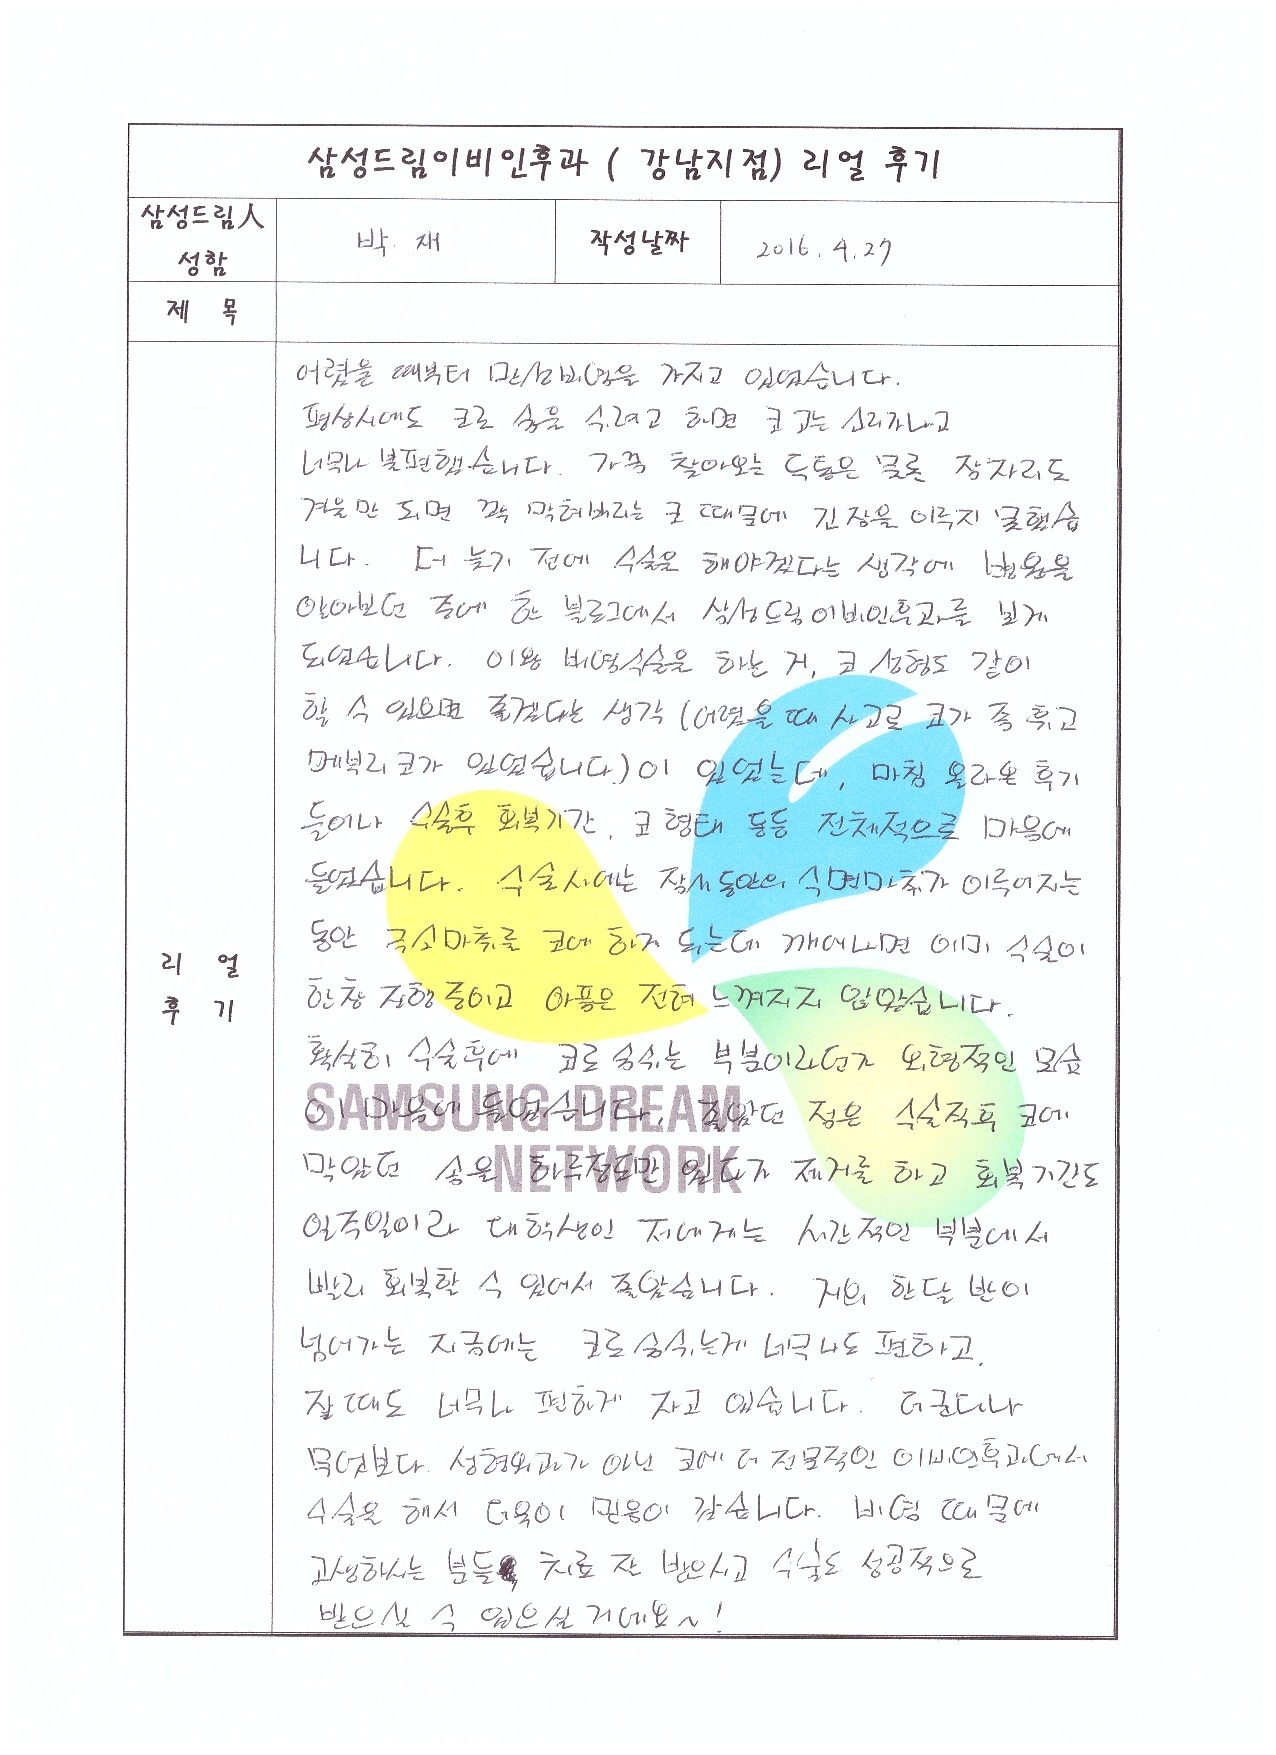 삼성드림이비인후과 ( 강남지점) 리얼 후기
삼성드림人
성함
박 재
작성날짜
2016. 4. 27
제 목
리 얼
후 기
어렸을 때부터 만성비염을 가지고 있었습니다.
평상시에도 코로 숨을 쉬려고 하면 코 고는 소리가나고
너무나 불편했습니다. 가끔 찾아오는 두통은 물론 잠자리도
겨울만 되면 꽉 막혀버리는 코 때문에 긴 잠을 이루지 못했습
니다. 더 늦기 전에 수술을 해야겠다는 생각에 병원을
알아보던 중에 한 블로그에서 삼성드림이비인후과를 보게
되었습니다. 이왕 비염수술을 하는 거, 코 성형도 같이
할 수 있으면 좋겠다는 생각 (어렸을 때 사고로 코가 좀 휘고
메부리코가 있었습니다.)이 있었는데, 마침 올라온 후기
들이나 수술후 회복기간, 코 형태 등등 전체적으로 마음에
들었습니다. 수술시에는 잠시동안의 수면마취가 이루어지는
동안 국소마취를 코에 하게 되는데 깨어나면 이미 수술이
한창 진행 중이고 아픔은 전혀 느껴지지 않았습니다.
확실히 수술후에 코로 숨쉬는 부분이라던가 외형적인 모습
이 마음에 들었습니다. 좋았던 점은 수술직후 코에
막았던 솜을 하루정도만 있다가 제거를 하고 회복기간도
일주일이라 대학생인 저에게는 시간적인 부분에서
빨리 회복할 수 있어서 좋았습니다. 거의 한달 반이
넘어가는 지금에는 코로 숨쉬는게 너무나도 편하고,
잘 때도 너무나 편하게 자고 있습니다. 더군다나
무엇보다 성형외과가 아닌 코에 더 전문적인 이비인후과에서
수술을 해서 더욱이 믿음이 갔습니다. 비염 때문에
고생하시는 분들 치료 잘 받으시고 수술도 성공적으로
받으실 수 있으실 거에요~!
SAMSUNG DREAM
NETWORK